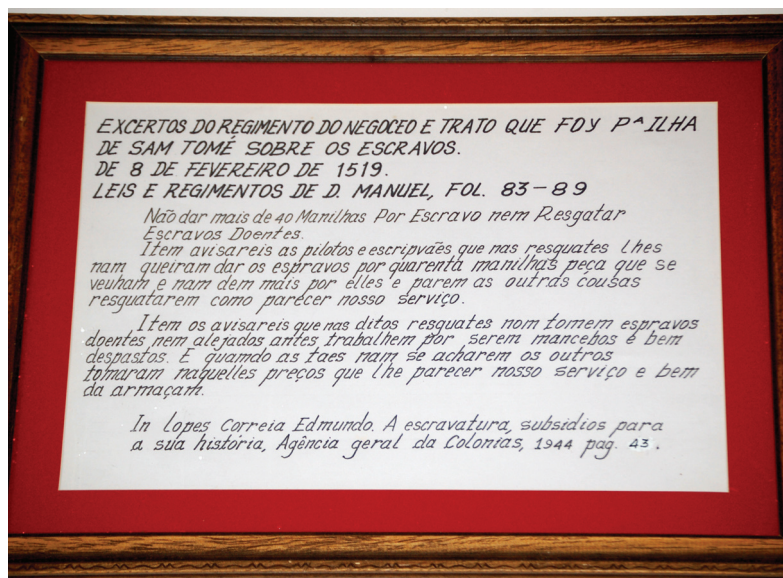 EXCERTOS DO REGIMENTO DO NEGOCEO E TRATO QUE FOY Pᴬ ILHA
DE SAM TOMÉ SOBRE OS ESCRAVOS.
DE 8 DE FEVEREIRO DE 1519.
LEIS E REGIMENTOS DE D. MANUEL, FOL. 83-89
Não dar mais de 40 Manilhas Por Escravo nem Resgatar
Escravos Doentes.
Item avisareis as pilotos e escripvães que nas resguates lhes
nam queiram dar os espravos por quarenta manilhas peça que se
veuham e nam dem mais por elles e parem as outras cousas
resguatarem como parecer nosso serviço.
Item os avisareis que nas ditos resguates nom tomem espravos
doentes nem alejados antes trabalhem por serem mancebos e bem
despastos. E quamdo as taes nam se acharem os outros
tomaram naquelles preços que lhe parecer nosso serviço e bem
da armaçam.
In lopes Correia Edmundo. A escravatura, subsidios para
a sua história, Agência geral da Colonias, 1944 pag. 43.